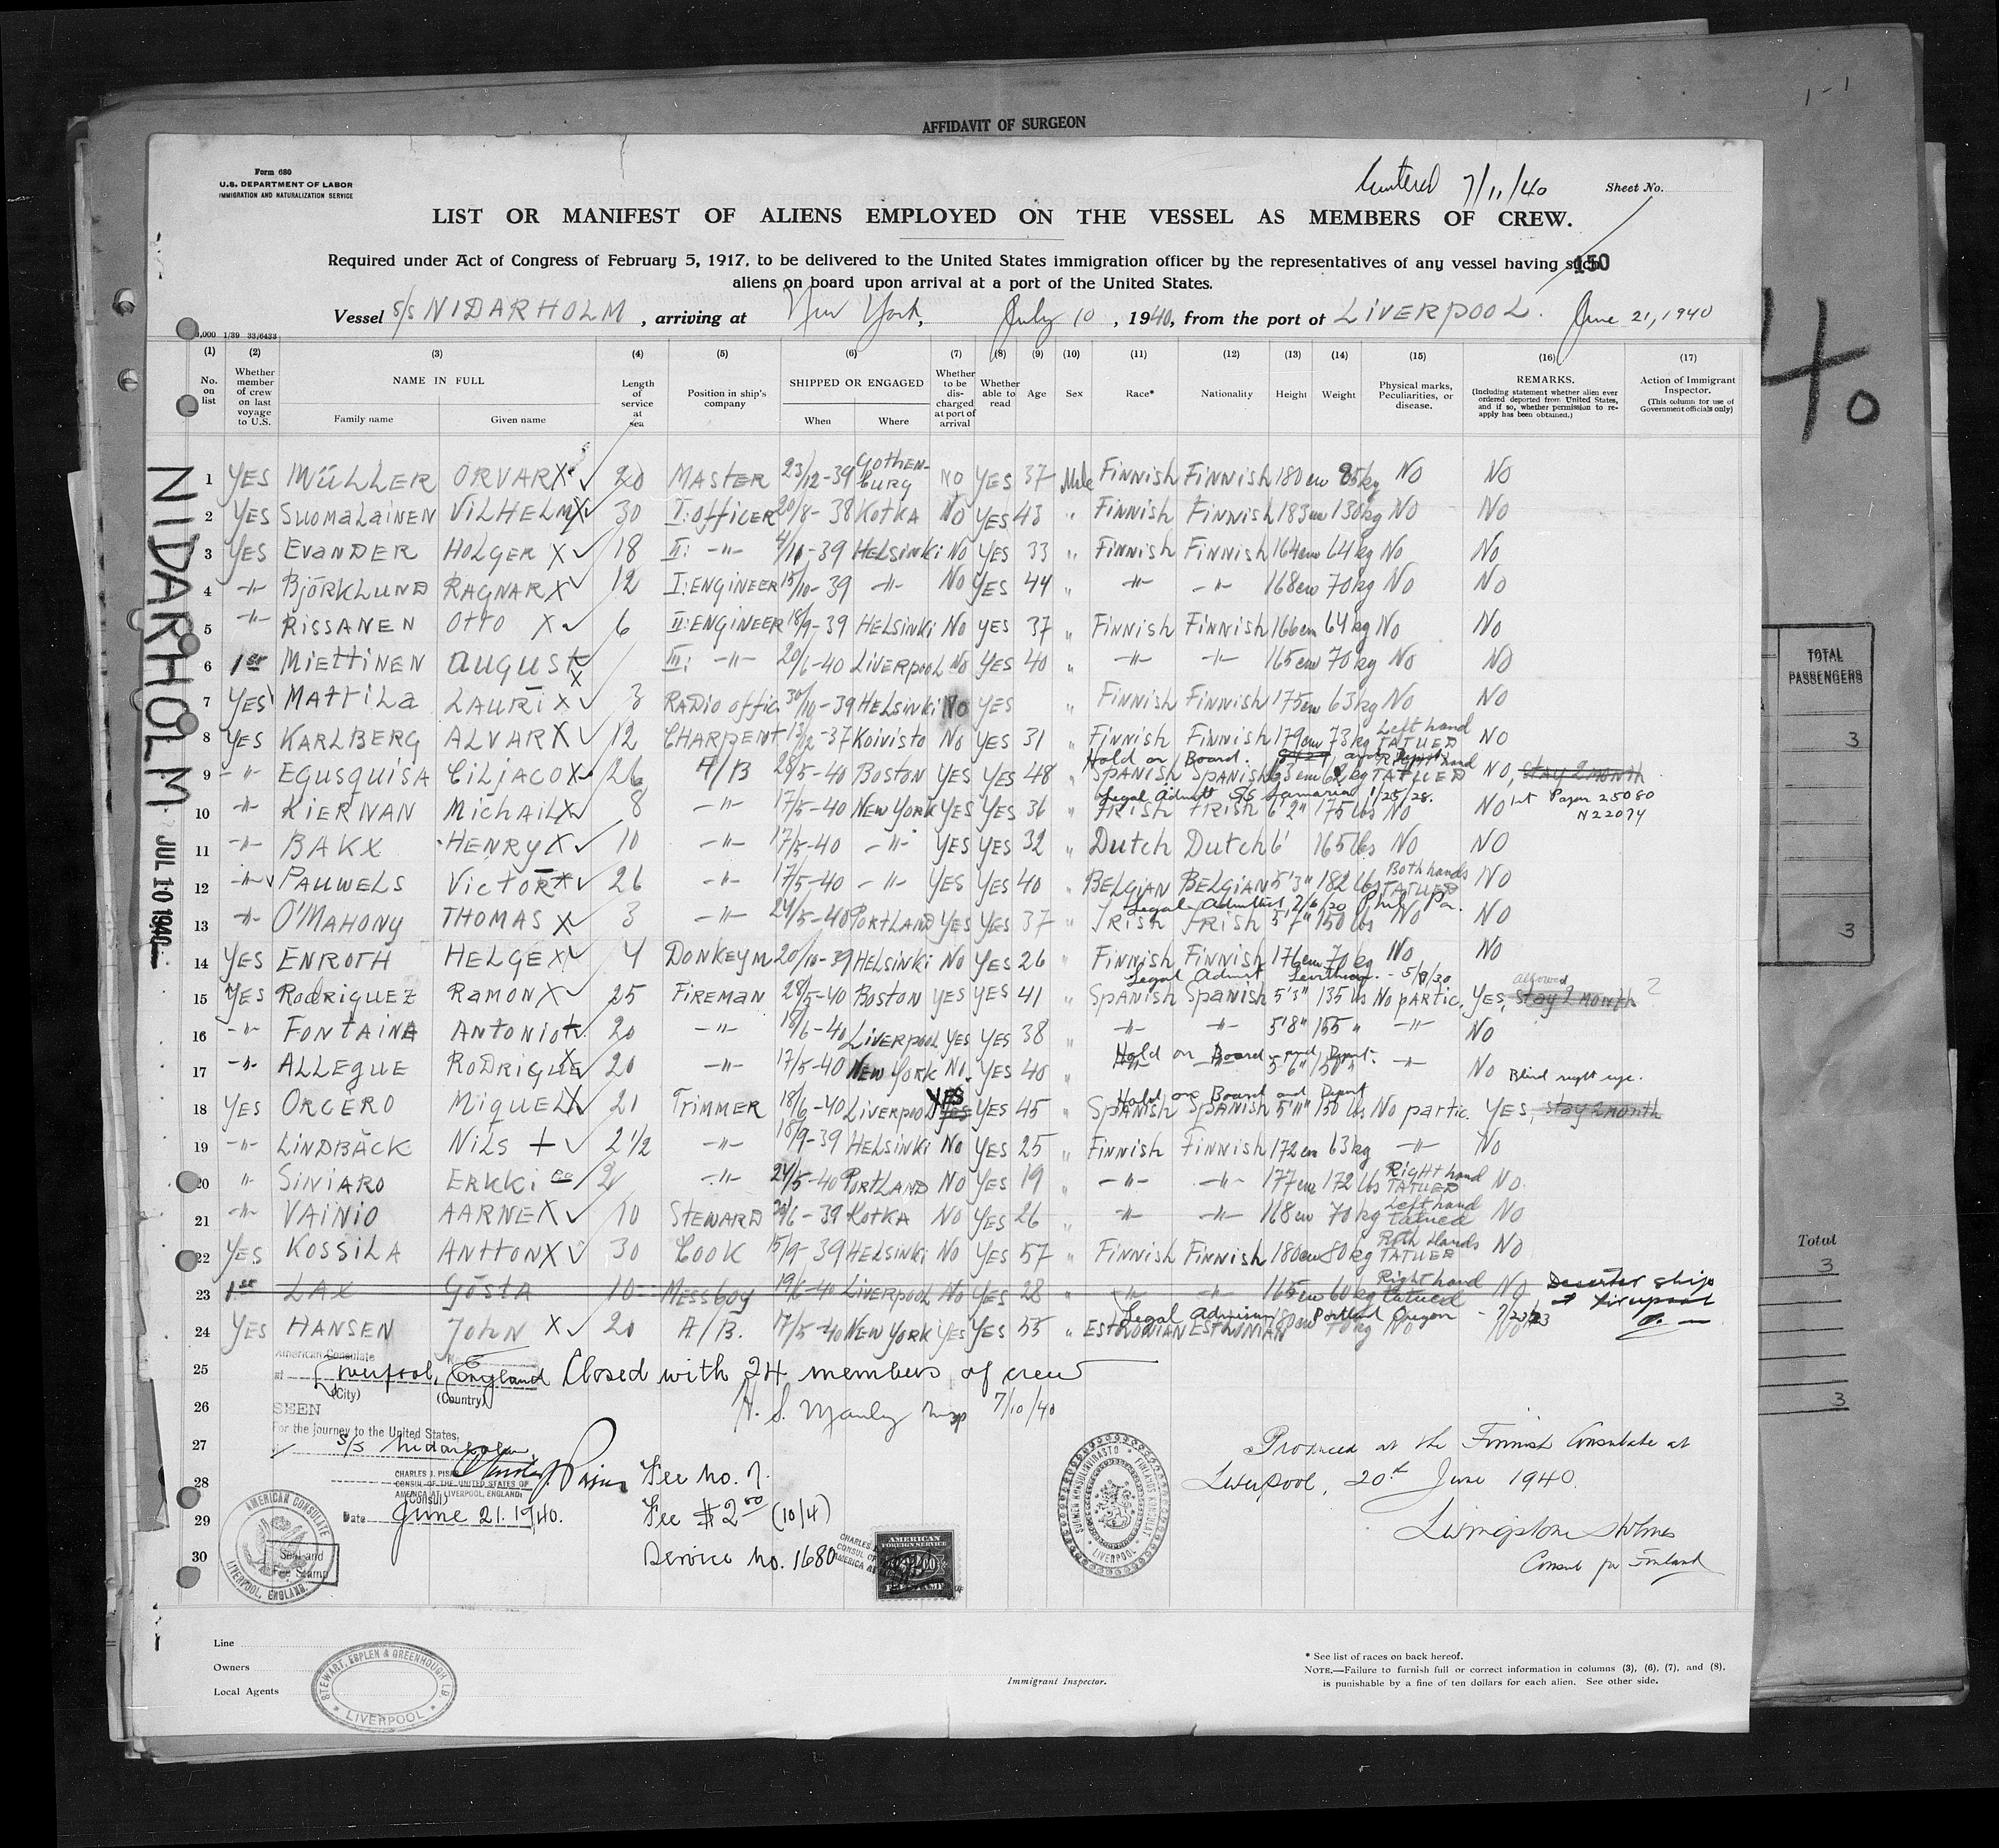 AFFIDAVIT OF SURGEON
1-1
Form 680
U.S. DEPARTMENT OF LABOR
IMMIGRATION AND NATURALIZATION SERVICE
Entered 7/11/40
Sheet No.
LIST OR MANIFEST OF ALIENS EMPLOYED ON THE VESSEL AS MEMBERS OF CREW.
Required under Act of Congress of February 5, 1917, to be delivered to the United States immigration officer by the representatives of any vessel having such
150
aliens on board upon arrival at a port of the United States.
Vessel S/S NIDARHOLM, arriving at New York, July 10, 1940, from the port of LIVERPOOL. June 21, 1940
(1) (2) (3) (4) (5) (6) (7) (8) (9) (10) (11) (12) (13) (14) (15) (16) (17)
No. on list
Whether member of crew on last voyage to U.S.
NAME IN FULL
Family name Given name
Length of service at sea
Position in ship's company
SHIPPED OR ENGAGED
When Where
Whether to be discharged at port of arrival
Whether able to read
Age
Sex
Race*
Nationality
Height
Weight
Physical marks, Peculiarities, or disease.
REMARKS.
(Including statement whether alien ever ordered deported from United States, and if so, whether permission to reapply has been obtained.)
Action of Immigrant Inspector.
(This column for use of Government officials only)
1 YES MÜLLER ORVAR X 20 MASTER 23/12-39 GOTHENBURG NO YES 37 Male FINNISH FINNISH 180 cm 85 kg NO NO
2 YES SUOMALAINEN VILHELM X 30 I: OFFICER 20/8-38 KOTKA NO YES 43 " FINNISH FINNISH 183 cm 130 kg NO NO
3 YES EVANDER HOLGER X 18 II: -"- 4/10-39 HELSINKI NO YES 33 " FINNISH FINNISH 164 cm 64 kg NO NO
4 -"- BJÖRKLUND RAGNAR X 12 I: ENGINEER 15/10-39 -"- NO YES 44 " -"- -"- 168 cm 70 kg NO NO
5 -"- RISSANEN OTTO X 6 II: ENGINEER 18/9-39 HELSINKI NO YES 37 " FINNISH FINNISH 166 cm 64 kg NO NO
6 1st MIETTINEN AUGUST X III: -"- 20/6-40 LIVERPOOL NO YES 40 " -"- -"- 165 cm 70 kg NO NO
7 YES MATTILA LAURI X 3 RADIO OFFIC. 30/10-39 HELSINKI NO YES " FINNISH FINNISH 175 cm 63 kg NO NO
8 YES KARLBERG ALVAR X 12 CHARPENT 13/12-37 KOIVISTO NO YES 31 " FINNISH FINNISH 179 cm 73 kg Left hand TATUED NO
Hold on Board.
9 -"- EGUSQUISA CILJACO X 26 A/B 28/5-40 BOSTON YES YES 48 " SPANISH SPANISH 63 cm 62 kg TATUED NO, STAY 2 MONTH
Legal Admitt SS Samaria 1/25/28.
10 -"- KIERNAN MICHAIL X 8 -"- 17/5-40 NEW YORK YES YES 36 " IRISH IRISH 6'2" 175 lbs NO NO 1st Paper 25080
N 22074
11 -"- BAKX HENRY X 10 -"- 17/5-40 -"- YES YES 32 " Dutch Dutch 6' 165 lbs NO NO
12 -"- PAUWELS VICTOR X 26 -"- 17/5-40 -"- YES YES 40 " BELGIAN BELGIAN 5'3" 182 lbs Both hands TATUED NO
Legal Admitted 2/6/20 Phil. Pa.
13 -"- O'MAHONY THOMAS X 3 -"- 24/5-40 PORTLAND YES YES 37 " IRISH IRISH 5'7" 150 lbs NO NO
14 YES ENROTH HELGE X 4 DONKEYM 20/10-39 HELSINKI NO YES 26 " FINNISH FINNISH 176 cm 70 kg NO NO
Legal Admit Leviathan - 5/8/30
15 YES RODRIGUEZ RAMON X 25 FIREMAN 28/5-40 BOSTON YES YES 41 " SPANISH SPANISH 5'3" 135 lbs No partic. YES, allowed STAY 2 MONTH
16 -"- FONTAINA ANTONIO 20 -"- 18/6-40 LIVERPOOL YES YES 38 " -"- -"- 5'8" 155 " -"- NO
Hold on Board and Deport.
17 -"- ALLEGUE RODRIGUE X 20 -"- 17/5-40 NEW YORK NO. YES 40 " 5'6" 150 " -"- NO Blind right eye.
Hold on Board and Deport
18 YES ORCERO MIQUEL X 21 TRIMMER 18/6-40 LIVERPOOL YES YES 45 " SPANISH SPANISH 5'11" 150 lbs No partic. YES, STAY 2 MONTH
19 -"- LINDBÄCK NILS 2 1/2 -"- 18/9-39 HELSINKI NO YES 25 " FINNISH FINNISH 172 cm 63 kg -"- NO
20 " SINIARO ERKKI 2 -"- 24/5-40 PORTLAND NO YES 19 " -"- -"- 177 cm 172 lbs RIGHT hand TATUED NO.
21 -"- VAINIO AARNE X 10 STEWARD 20/6-39 KOTKA NO YES 26 " -"- -"- 168 cm 70 kg Left hand tatued NO
22 YES KOSSILA ANTTON X 30 COOK 15/9-39 HELSINKI NO YES 57 " FINNISH FINNISH 180 cm 80 kg Both Hands TATUED NO
23 1st LAX GÖSTA 10 MESSBOY 19/6-40 LIVERPOOL NO YES 28 " " " 165 cm 60 kg Right hand tatued NO Deserter ship at Liverpool
Legal Admission Portland Oregon - 7/23/23
24 YES HANSEN JOHN X 20 A/B. 17/5-40 NEW YORK YES YES 55 " ESTHONIAN ESTHONIAN 180 cm 70 kg NO NO
25 American Consulate
at Liverpool, England Closed with 24 members of crew
(City) (Country)
26 SEEN H. S. Manly Insp 7/10/40
For the journey to the United States,
27 S/S Nidarholm
Produced at the Finnish Consulate at
CHARLES J. PISAR
28 CONSUL OF THE UNITED STATES OF
AMERICA AT LIVERPOOL, ENGLAND:
(Consul)
Fee No. 7.
Liverpool, 20th June 1940.
29 Date June 21. 1940.
Fee $2.00 (10/4)
Livingston Holmes
30 Service No. 1680
Consul for Finland
AMERICAN CONSULATE
LIVERPOOL, ENGLAND.
Seal and
Fee Stamp
AMERICAN
FOREIGN SERVICE
FEE STAMP
SUOMEN KONSULINVIRASTO
FINLANDS KONSULAT
LIVERPOOL
Line
Owners
Local Agents
STEWART, ESPLEN & GREENHOUGH LD
LIVERPOOL
Immigrant Inspector.
* See list of races on back hereof.
NOTE.—Failure to furnish full or correct information in columns (3), (6), (7), and (8),
is punishable by a fine of ten dollars for each alien. See other side.
NIDARHOLM JUL 10 1940
TOTAL
PASSENGERS
3
3
Total
3
3